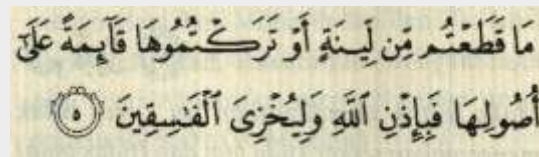 مَا قَطَعْتُم مِّن لِّينَةٍ أَوْ تَرَكْتُمُوهَا قَآئِمَةً عَلَىٰٓ
أُصُولِهَا فَبِإِذْنِ ٱللَّهِ وَلِيُخْزِىَ ٱلْفَـٰسِقِينَ ۝٥